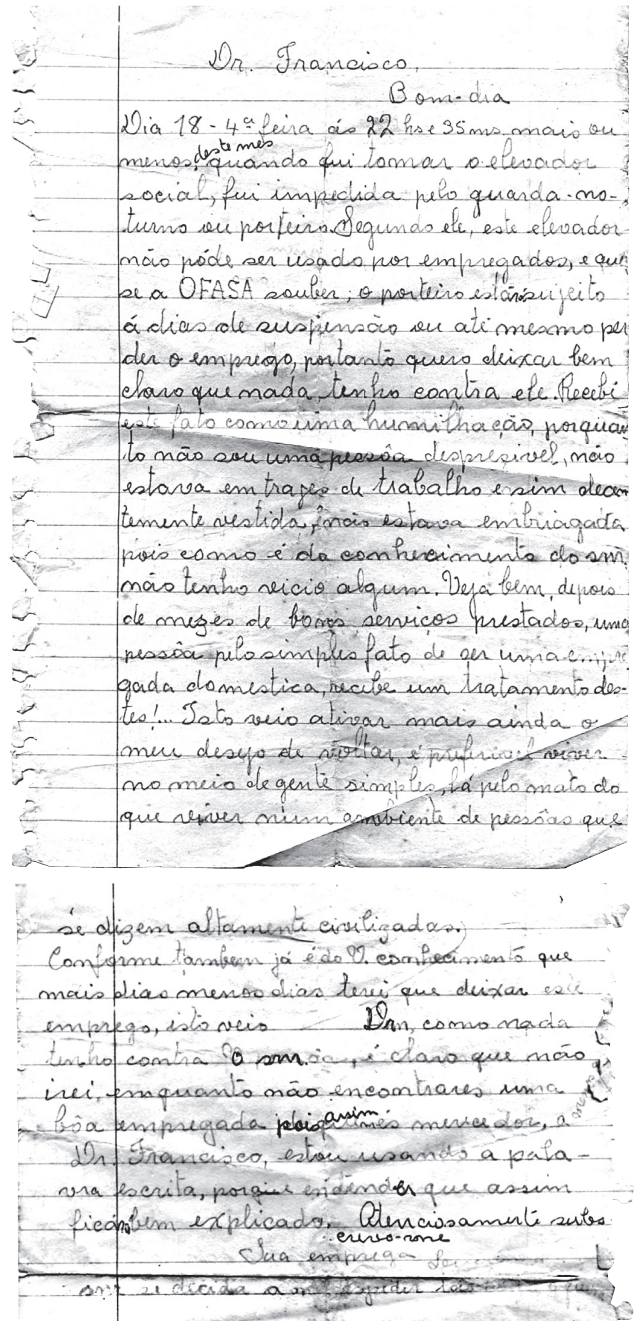 Dr. Francisco,
Bom-dia
Dia 18 - 4ª feira ás 22 hs e 35 ms mais ou
menos, deste mês quando fui tomar o elevador
social, fui impedida pelo guarda-no-
turno ou porteiro. Segundo ele, este elevador
não póde ser usado por empregados, e que
se a OFASA souber; o porteiro estára sujeito
á dias de suspensão ou até mesmo per
der o emprego, portanto quero deixar bem
claro que nada, tenho contra ele. Recebi
este fato como uma humilhação, porquan
to não sou uma pessôa despresivel, não
estava em trages de trabalho e sim decen
temente vestida, não estava embriagada
pois como é do conhecimento do snr.
não tenho vicio algum. Veja bem, depois
de mezes de bons serviços prestados, uma
pessôa pelo simples fato de ser uma empre
gada domestica, recibe um tratamento des-
tes!... Isto veio ativar mais ainda o
meu desejo de voltar, é preferivel viver
no meio de gente simples, lá pelo mato do
que viver num ambiente de pessôas que
sé dizem altamente civilizadas.
Conforme tambem já é do V. conhecimento que
mais dias menos dias terei que deixar este
emprego, isto veio como nada
tenho contra O snr. é claro que não
irei, emquanto não encontrares uma
bôa empregada pois assim mercedor, a
Dr. Francisco, estou usando a pala-
vra escrita, porque entender que assim
ficára bem explicado. Atenciosamente subs
crevo-me
Sua emprega
snr se decida a